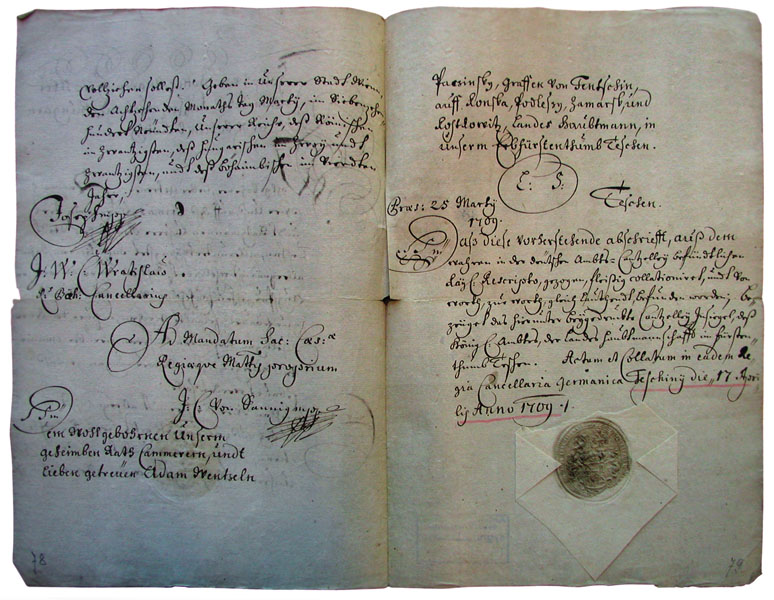 Vollziehen sollest. Geben in Unserer Stadt Wien,
den Achtzehenden Monaths Tag Marty, im Siebenzehen
hundert Neündten, Unserer Reiche, deß Römischen
in zwantzigsten, deß Hungarischen in
zwantzigsten, undt deß Böhaimbischen im Vierdten
Jahre,
Joseph
J. W. C. Wratislaw
R. Boh. Cancellarius
Ad Mandatum Sac: Cæs:æ
Regiæque Mattis proprium
J: C: Von
Dem
Wohlgebohrnen Unserm
geheimben Rath Cammerern, undt
lieben getreuen Adam Wentzeln
Paczinsky, Graffen von Tentschin,
auff Konska, Podlesy, Zamarsk, und
Kostkowitz, Landes Haubtmann, in
Unserm Erbfürstenthumb Teschen.
L: S:
Teschen.
Præs: 25 Marty
1709.
Daß diese vorherstehende abschrifft, auß dem
wahren in der deutschen Ambts-Cantzelley befündtlichen
Kay: Rescripto, gezogen, fleißig collationiret, undt von
worth, zu worth, gleich lauthendt befunden worden; be-
zeüget das hierunter beygedruckte Cantzelley Insiegel, deß
König: Ambtes, der Landes Haubtmannschafft im Fürsten-
thumb Teschen. Actum et Collatum in eadem Re-
gia Cancellaria Germanica Teschiny die 17 Apri-
lis Anno 1709.
78
79